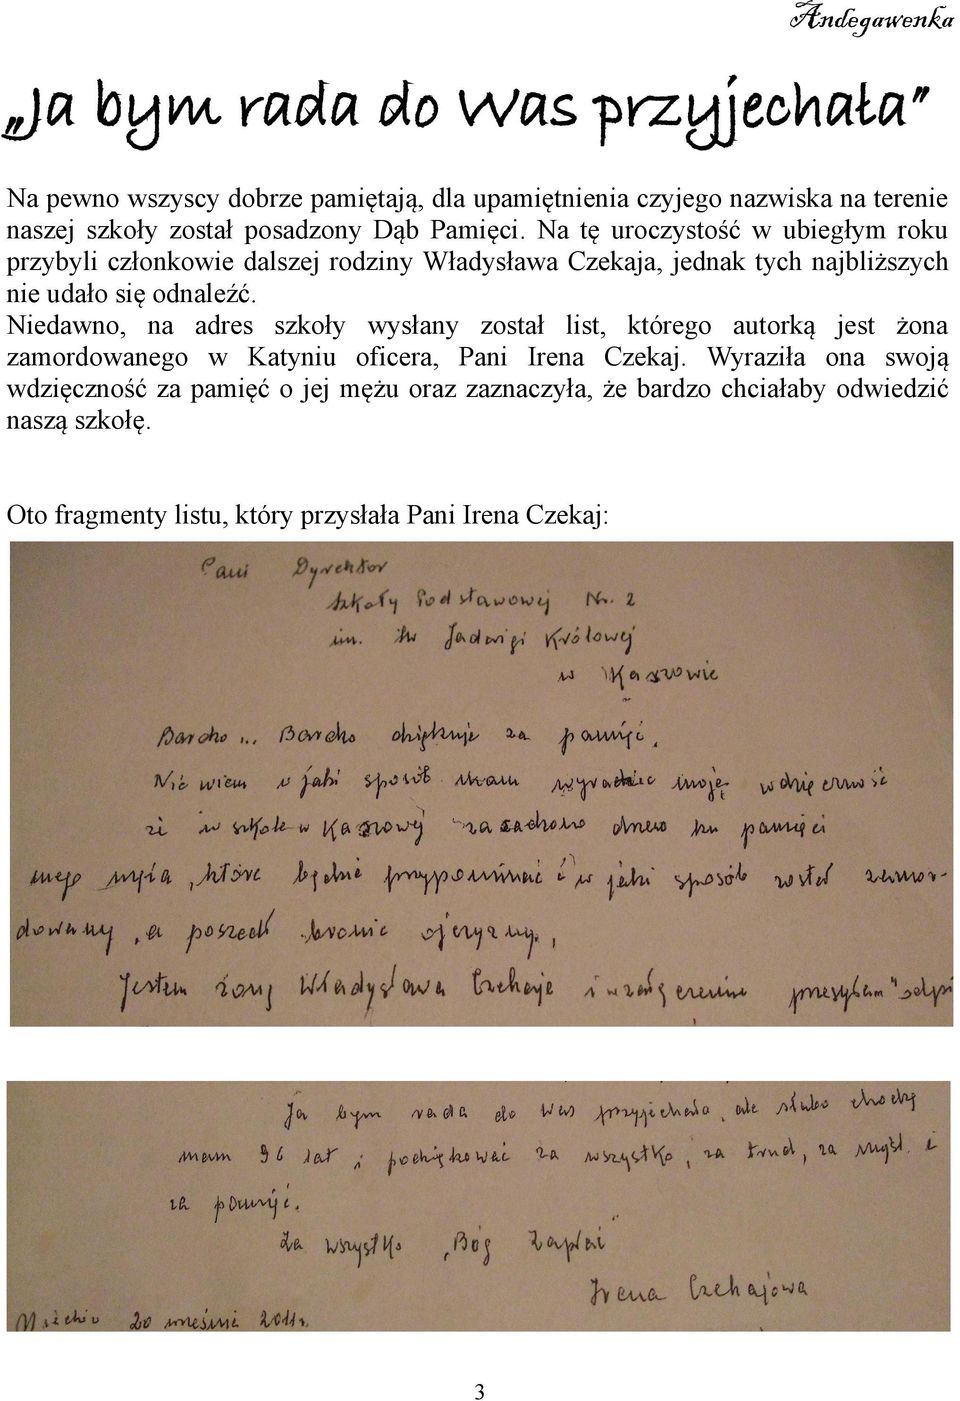 Andegawenka
„Ja bym rada do Was przyjechała”
Na pewno wszyscy dobrze pamiętają, dla upamiętnienia czyjego nazwiska na terenie
naszej szkoły został posadzony Dąb Pamięci. Na tę uroczystość w ubiegłym roku
przybyli członkowie dalszej rodziny Władysława Czekaja, jednak tych najbliższych
nie udało się odnaleźć.
Niedawno, na adres szkoły wysłany został list, którego autorką jest żona
zamordowanego w Katyniu oficera, Pani Irena Czekaj. Wyraziła ona swoją
wdzięczność za pamięć o jej mężu oraz zaznaczyła, że bardzo chciałaby odwiedzić
naszą szkołę.
Oto fragmenty listu, który przysłała Pani Irena Czekaj:
Pani Dyrektor
Szkoły Podstawowej Nr. 2
im. Św Jadwigi Królowej
w Kaszowie
Bardzo ... Bardzo dziękuję za pamięć.
Nie wiem w jaki sposób mam wyrazić moją wdzięczność
że w szkole w Kaszowej zasadzono drzewo ku pamięci
mego męża, które będzie przypominać i w jaki sposób został zamor-
dowany, a poszedł bronić ojczyzny.
Jestem żoną Władysława Czekaja i w załączeniu przesyłam "odpi
Ja bym rada do Was przyjechała, ale słabo chodzę
mam 96 lat i podziękować za wszystko, za trud, za myśl i
za pamięć.
Za wszystko „Bóg Zapłać"
Irena Czekajowa
20 wrześnie 2011r.
3